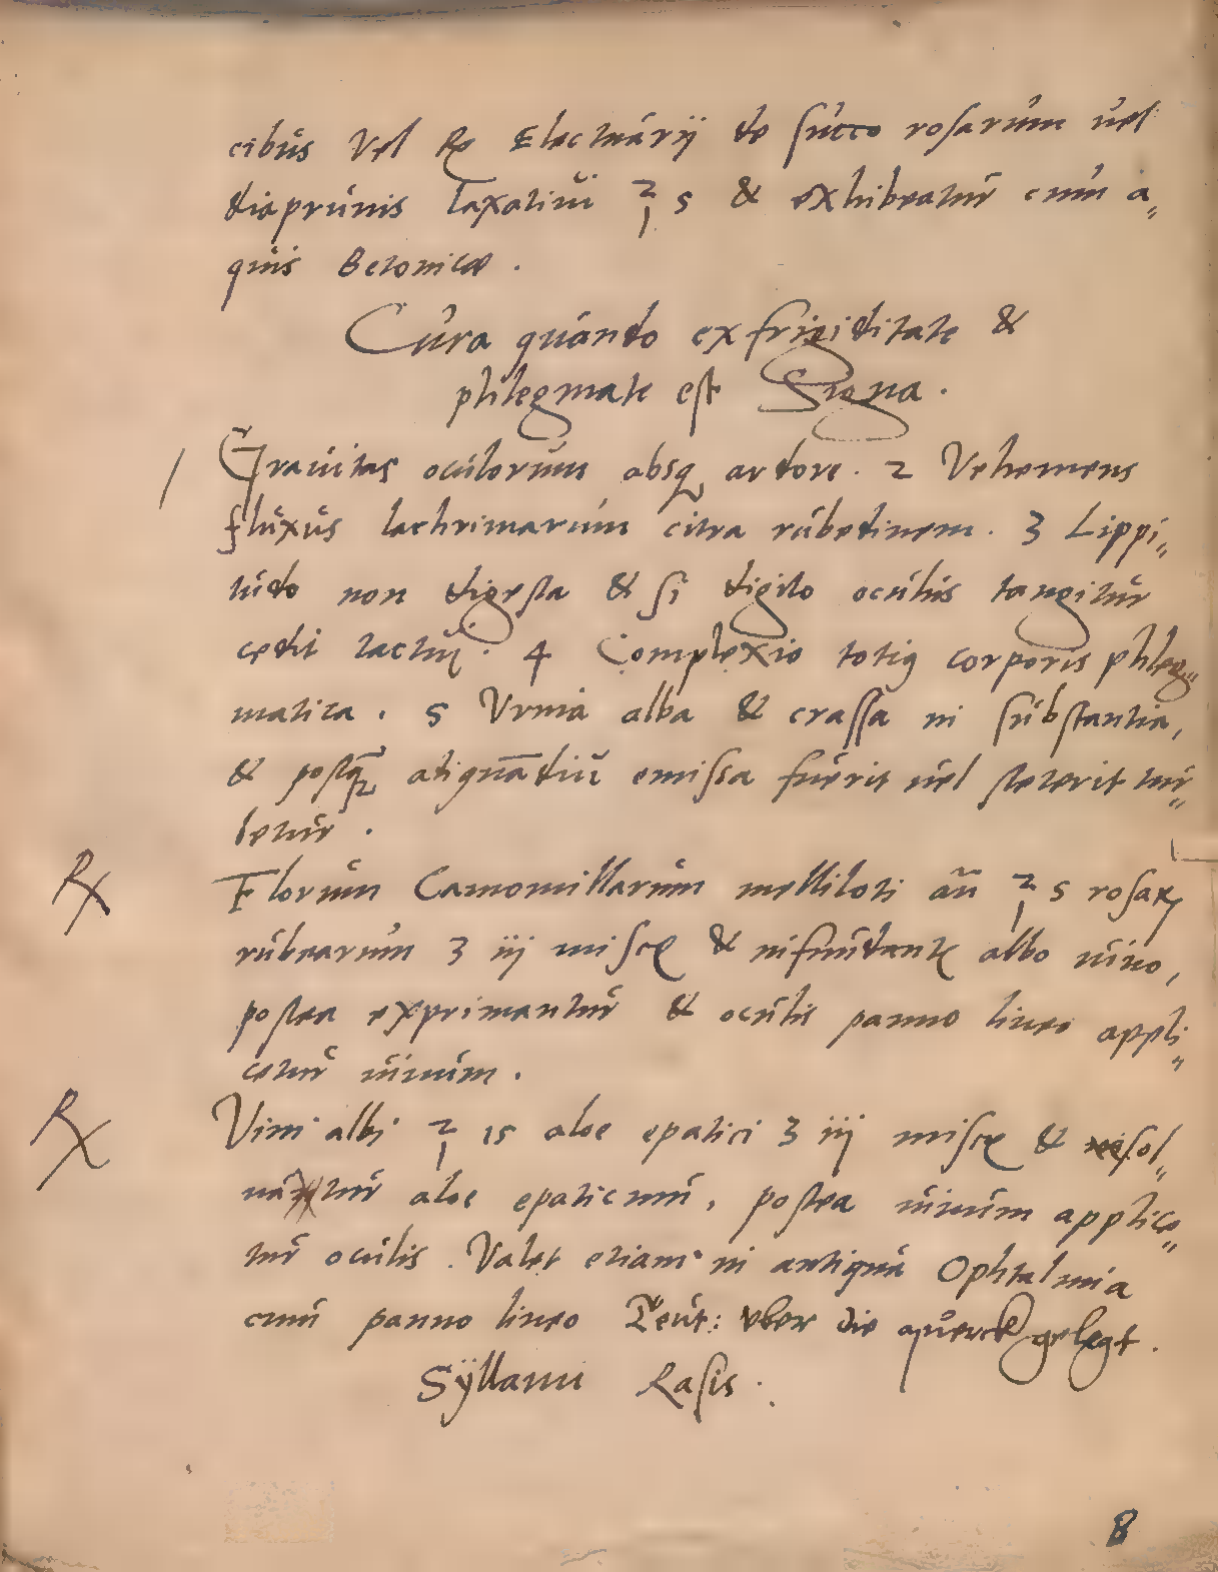 cibus Vel ℞ Electuarij de succo rosarum uel
diaprunis laxatiui ʒ 1 s & exhibeatur cum a„
quis Betonicæ .
Cura quando ex frigiditate &
phlegmate est Signa .
1 Grauitas oculorum absq ardore . 2 Vehemens
fluxus lachrimarum citra rubedinem . 3 Lippi„
tudo non digesta & si digito oculus tangitur
cedit tactui . 4 Complexio totiq corporis phleg„
matica . 5 Vrina alba & crassa in substantia,
& postq̃ aliquãdiu emissa fuerit uel steterit tur„
betur .
℞ Florum Camomillarum melliloti añ ℥ 1 s rosaꝝ
rubearum ʒ iij misce & infundant albo uino,
postea exprimantur & oculis panno lineo appli„
cetur uinum .
℞ Vini albi ℥ 1 s aloe epatici ʒ iij misce & resol„
uatur aloe epaticum, postea uinum applice„
tur oculis . Valet etiam in antiqua Ophtalmia
cum panno lineo Teut: vber die gelegt .
Syllani Rasis .
8